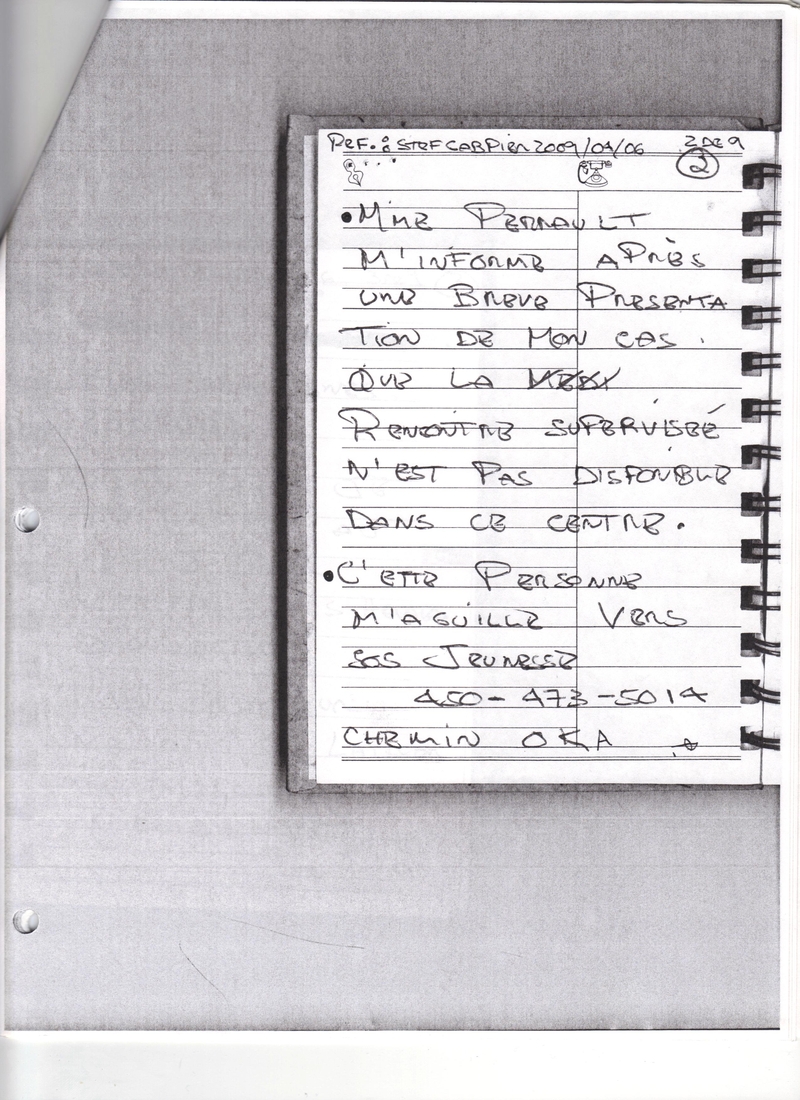 REF.: STEF CARPIER 2009/04/06 2 DE 9
2
• MME PERRAULT
M'INFORME APRÈS
UNE BREVE PRESENTA
TION DE MON CAS.
QUE LA
RENCONTRE SUPERVISÉÉ
N'EST PAS DISPONIBLE
DANS CE CENTRE.
• C'ETTE PERSONNE
M'AGUILLE VERS
SOS JEUNESSE
450-473-5014
CHEMIN OKA